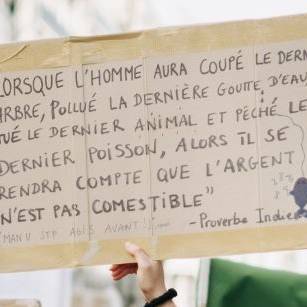 LORSQUE L'HOMME AURA COUPÉ LE DERN
ARBRE, POLLUÉ LA DERNIÈRE GOUTTE D'EAU
TUÉ LE DERNIER ANIMAL ET PÊCHÉ LE
DERNIER POISSON, ALORS IL SE
RENDRA COMPTE QUE L'ARGENT
N'EST PAS COMESTIBLE"
- Proverbe Indien
MANU STP AGIS AVANT!